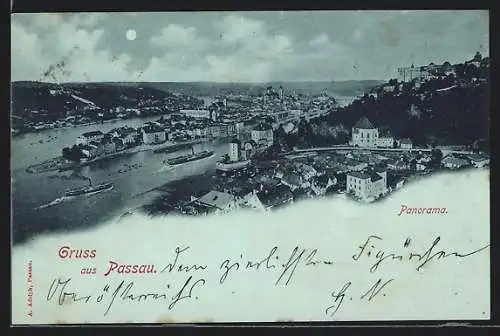 Panorama.
Gruss
aus Passau. dem zierlichen Figürchen
Oberösterreichs H. N.
A. Adolph, Passau.